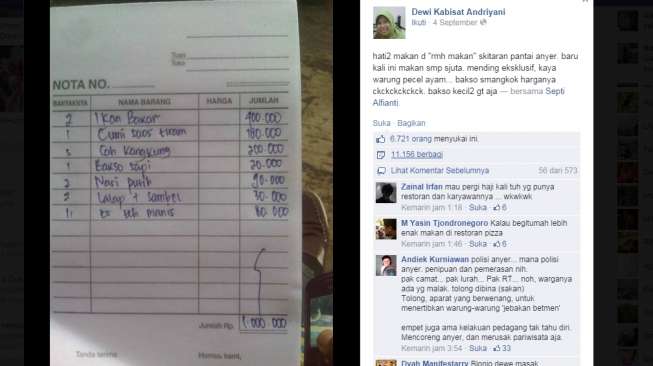 Tuan
Toko
NOTA NO.
BANYAKNYA NAMA BARANG HARGA JUMLAH
2 Ikan Bakar 400.000
1 Cumi saos tiram 180.000
5 Cah kangkung 200.000
1 Bakso sapi 20.000
2 Nasi putih 90.000
2 Lalap + sambel 30.000
11 es teh manis 80.000
Jumlah Rp. 1.000.000
Tanda terima Hormat kami,
Dewi Kabisat Andriyani
Ikuti · 4 September
hati2 makan d "rmh makan" skitaran pantai anyer. baru
kali ini makan smp sjuta. mending eksklusif, kaya
warung pecel ayam... bakso smangkok harganya
ckckckckckck. bakso kecil2 gt aja — bersama Septi
Alfianti.
Suka Bagikan
6.721 orang menyukai ini.
11.156 berbagi
Lihat Komentar Sebelumnya 56 dari 573
Zainal Irfan mau pergi haji kali tuh yg punya
restoran dan karyawannya ... wkwkwk
Kemarin jam 1:18 · Suka · 6
M Yasin Tjondronegoro Kalau begitumah lebih
enak makan di restoran pizza
Kemarin jam 1:46 · Suka · 6
Andiek Kurniawan polisi anyer... mana polisi
anyer. penipuan dan pemerasan nih.
pak camat... pak lurah... Pak RT... noh, warganya
ada yg malak. tolong dibina (sakan)
Tolong, aparat yang berwenang, untuk
menertibkan warung-warung 'jebakan betmen'
empet juga ama kelakuan pedagang tak tahu diri.
Mencoreng anyer, dan merusak pariwisata aja.
Kemarin jam 3:54 · Suka · 33
Dyah Manifestarry Bisnis dewe masak